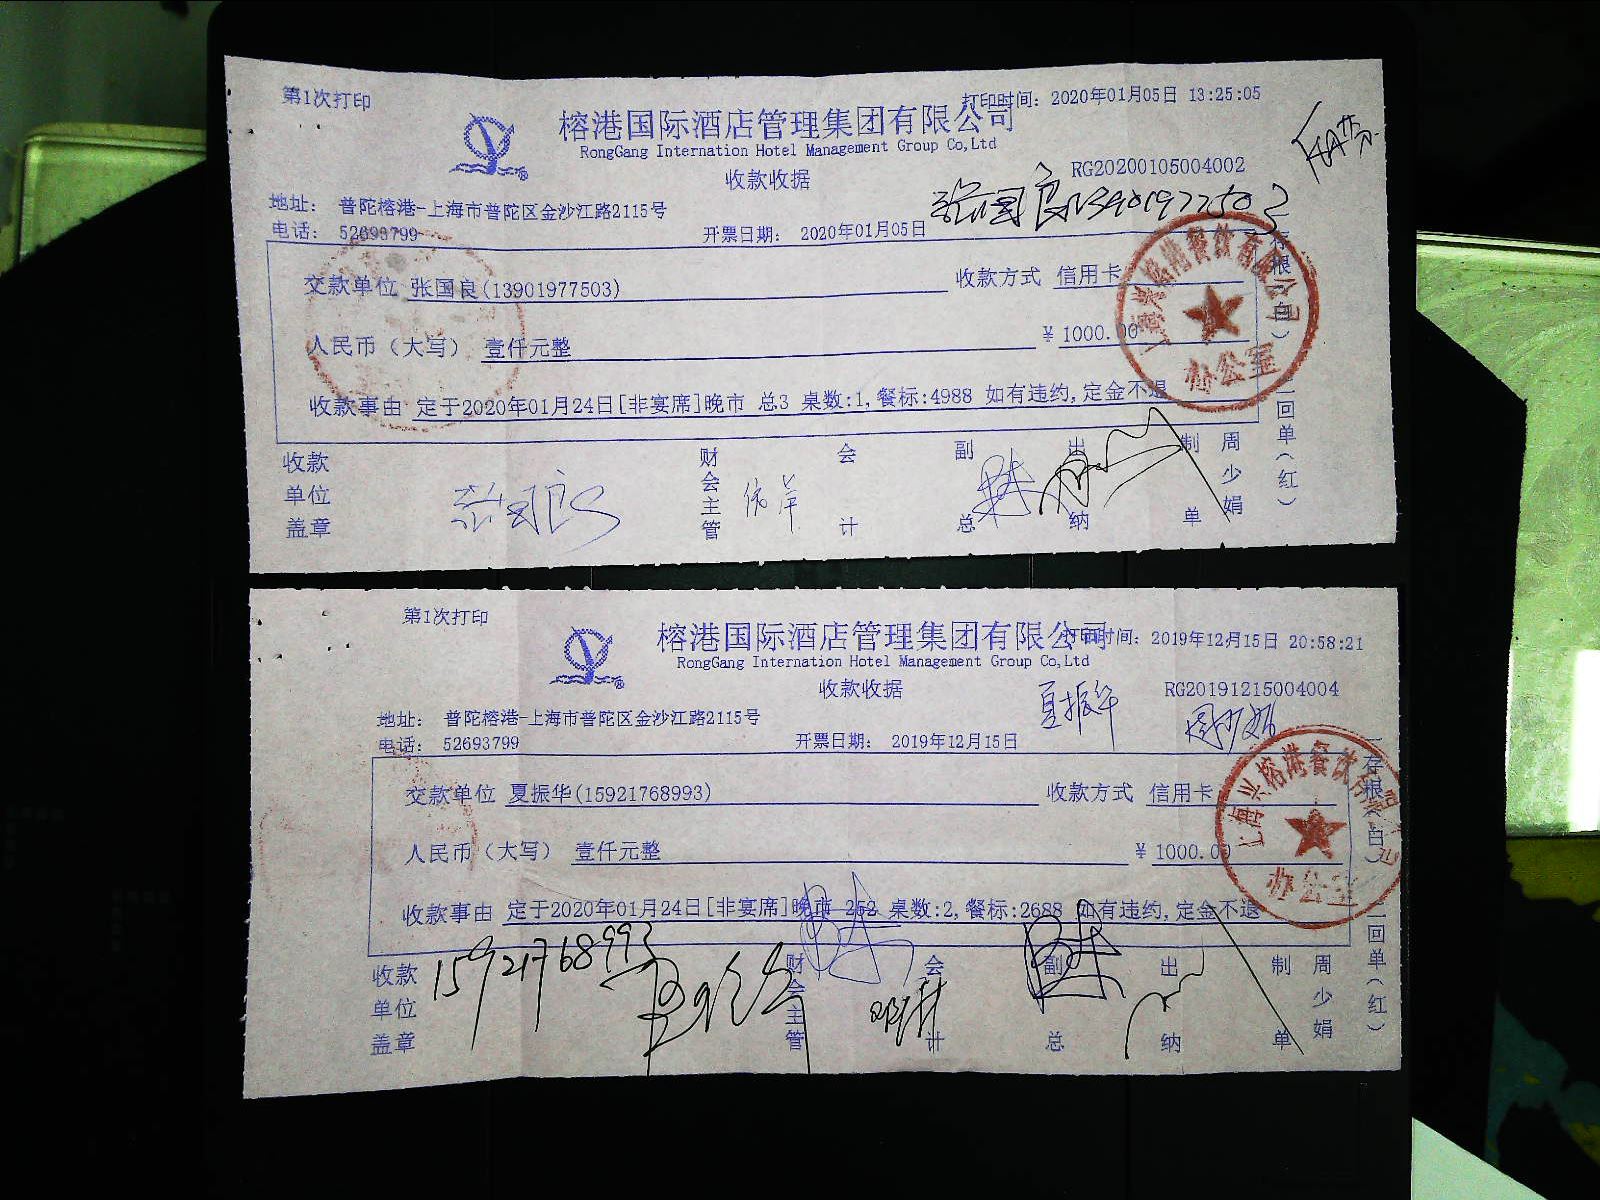 第1次打印
打印时间: 2020年01月05日 13:25:05
榕港国际酒店管理集团有限公司
RongGang Internation Hotel Management Group Co,Ltd
RG20200105004002
收款收据
张国良13901977503
地址: 普陀榕港-上海市普陀区金沙江路2115号
电话: 52693799
开票日期: 2020年01月05日
交款单位 张国良(13901977503) 收款方式 信用卡
人民币(大写) 壹仟元整 ¥ 1000.00
收款事由 定于2020年01月24日[非宴席]晚市 总3 桌数:1,餐标:4988 如有违约,定金不退
上海兴榕港餐饮有限公司
办公室
存根(白)
二回单(红)
收款单位盖章
张国良
财会主管
会计
副总
出纳
制单
周少娟
第1次打印
打印时间: 2019年12月15日 20:58:21
榕港国际酒店管理集团有限公司
RongGang Internation Hotel Management Group Co,Ltd
RG20191215004004
收款收据
夏振华
周少娟
地址: 普陀榕港-上海市普陀区金沙江路2115号
电话: 52693799
开票日期: 2019年12月15日
交款单位 夏振华(15921768993) 收款方式 信用卡
人民币(大写) 壹仟元整 ¥ 1000.00
收款事由 定于2020年01月24日[非宴席]晚市 252 桌数:2,餐标:2688 如有违约,定金不退
上海兴榕港餐饮有限公司
办公室
一存根(白)
二回单(红)
15921768993
收款单位盖章
财会主管
会计
副总
出纳
制单
周少娟